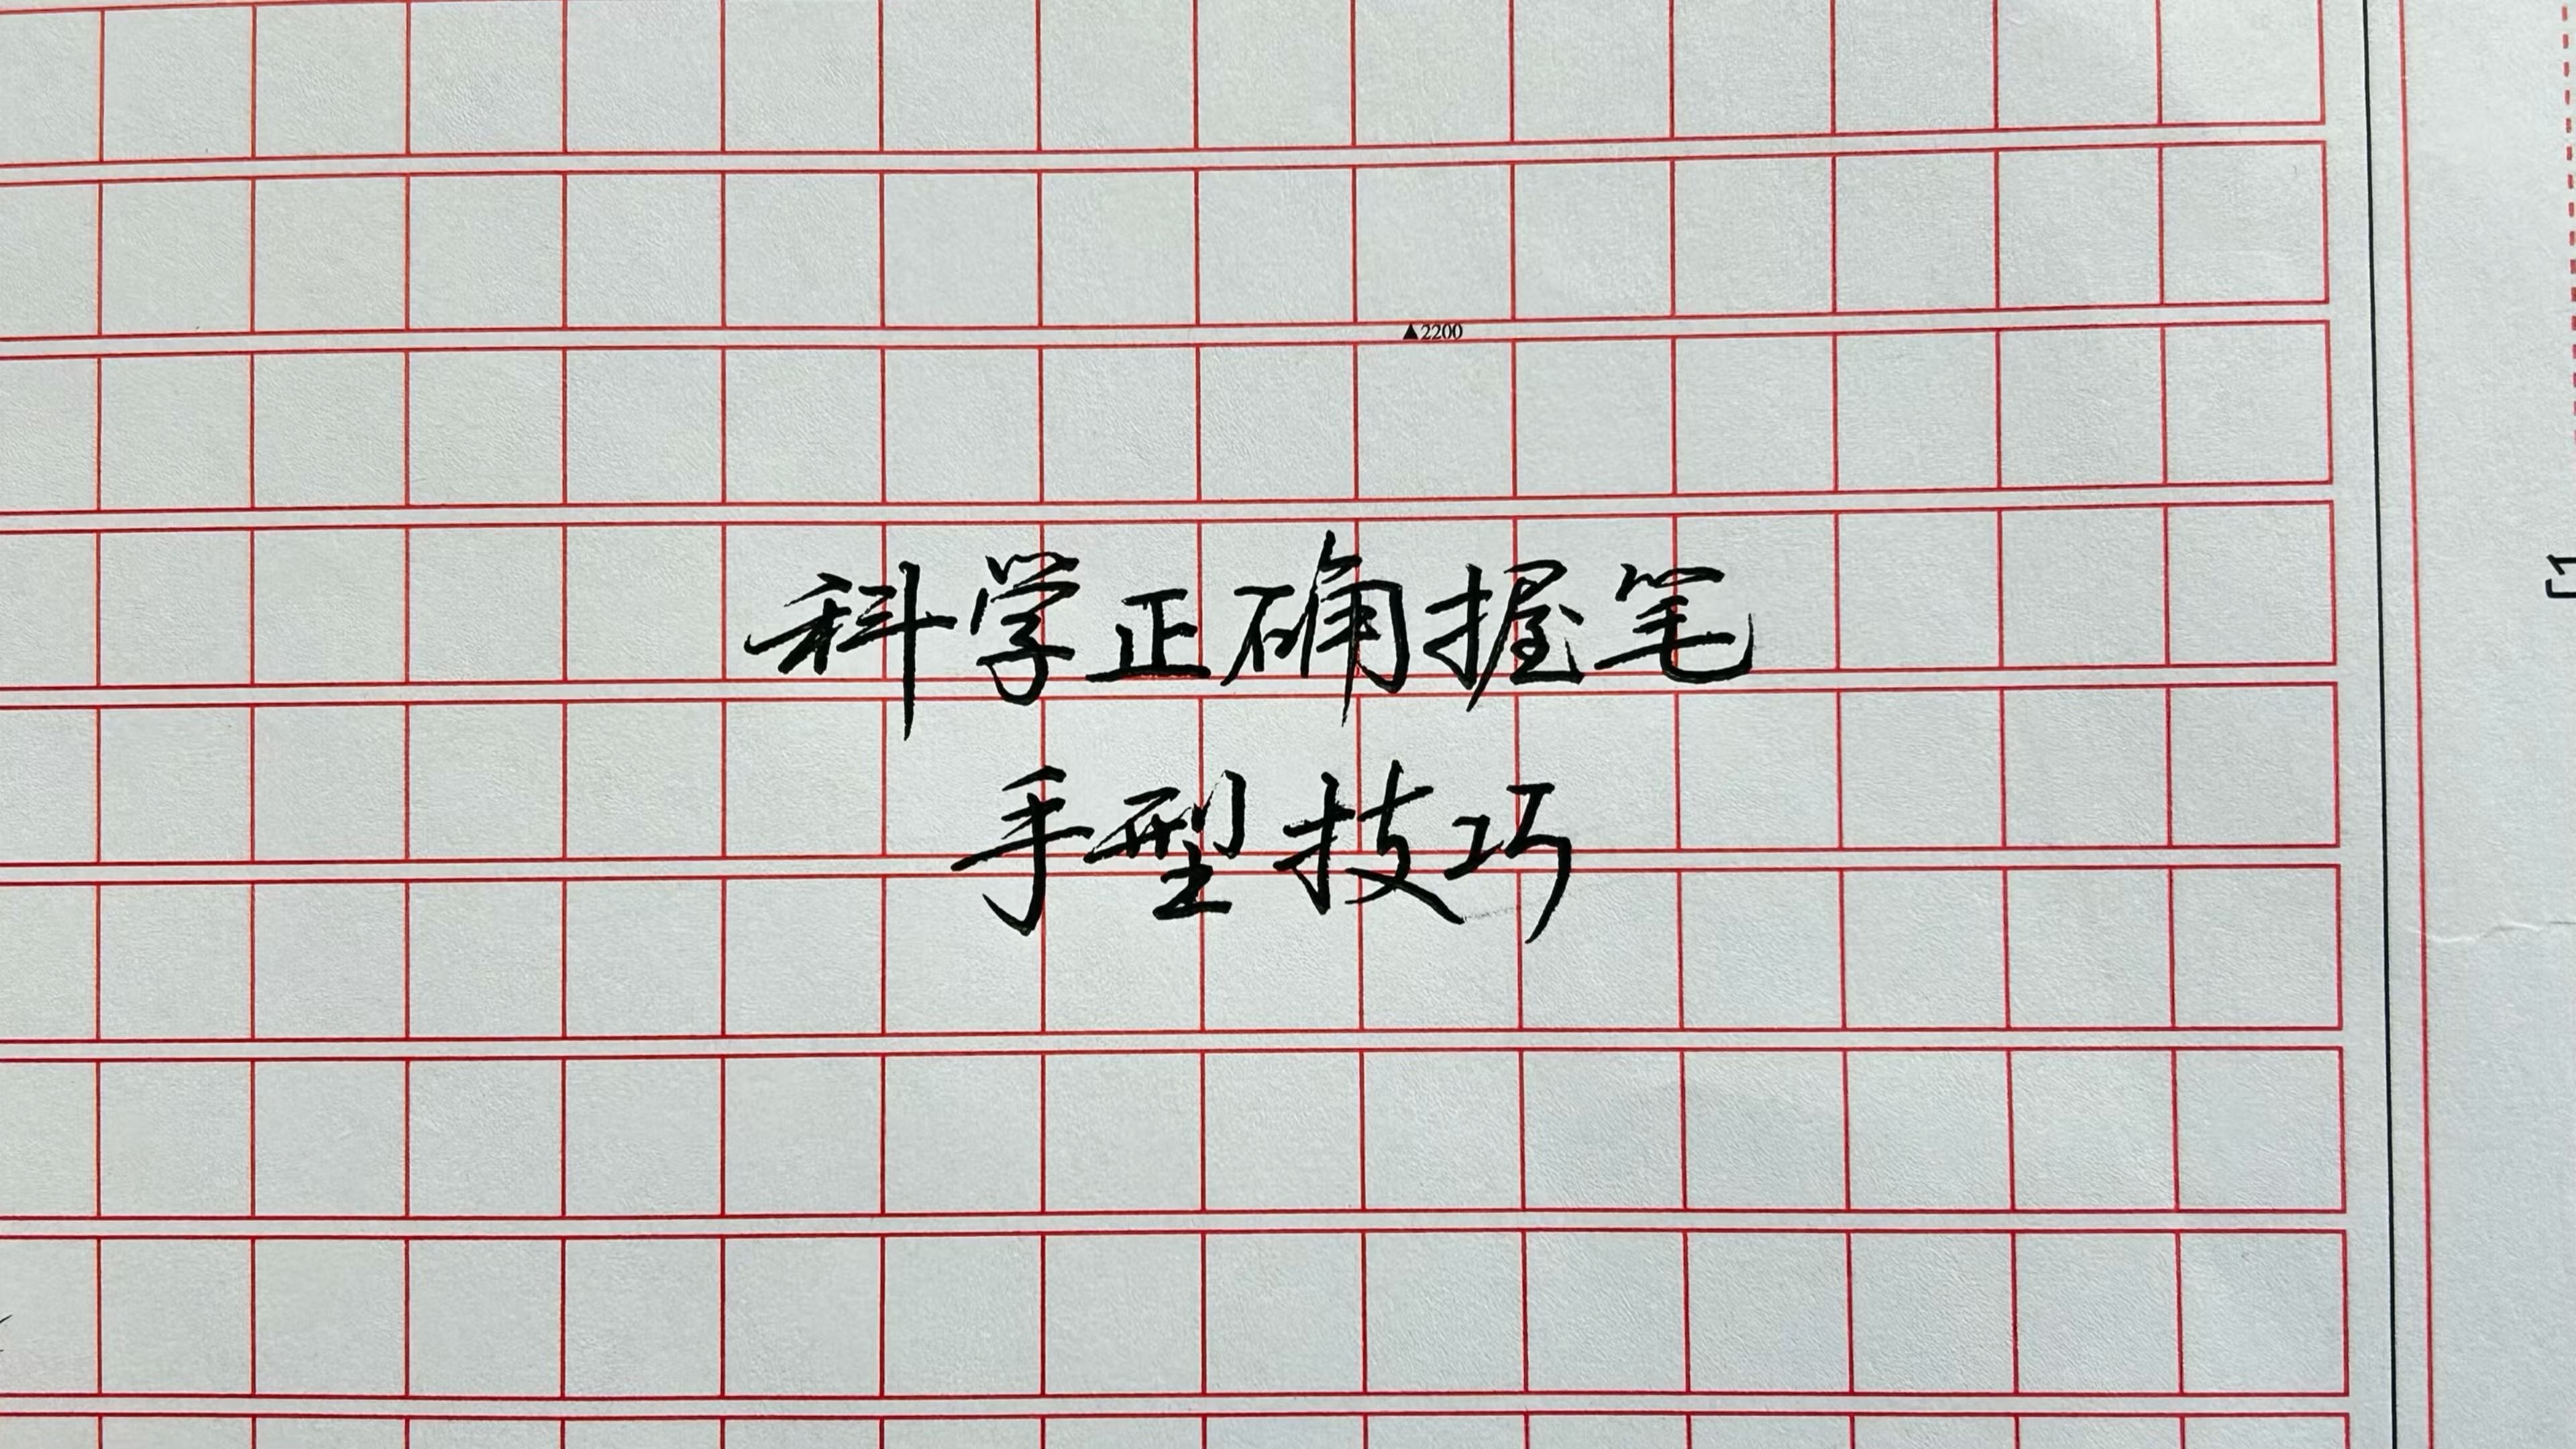 ▲2200
科学正确握笔
手型技巧